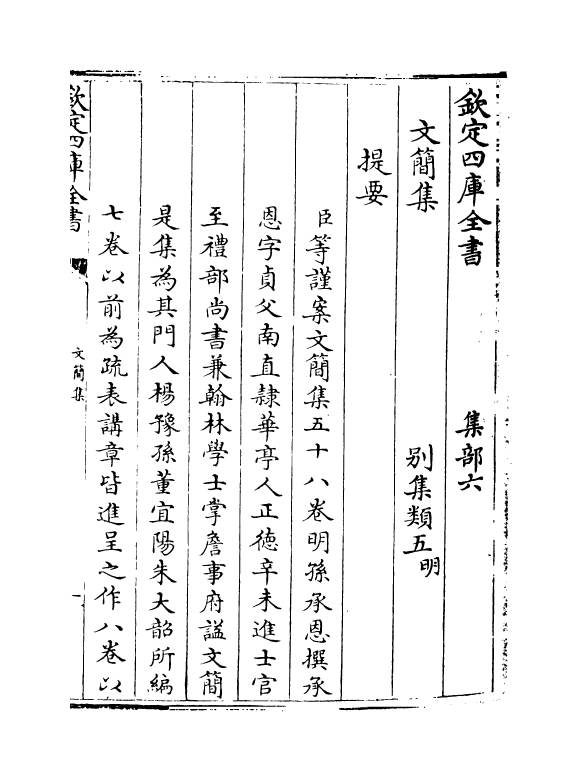 欽定四庫全書　集部六
文簡集　別集類五明
提要
臣等謹案文簡集五十八卷明孫承恩撰承
恩字貞父南直隸華亭人正德辛未進士官
至禮部尚書兼翰林學士掌詹事府諡文簡
是集為其門人楊豫孫董宜陽朱大韶所編
七卷以前為疏表講章皆進呈之作八卷以
欽定四庫全書　文簡集　一